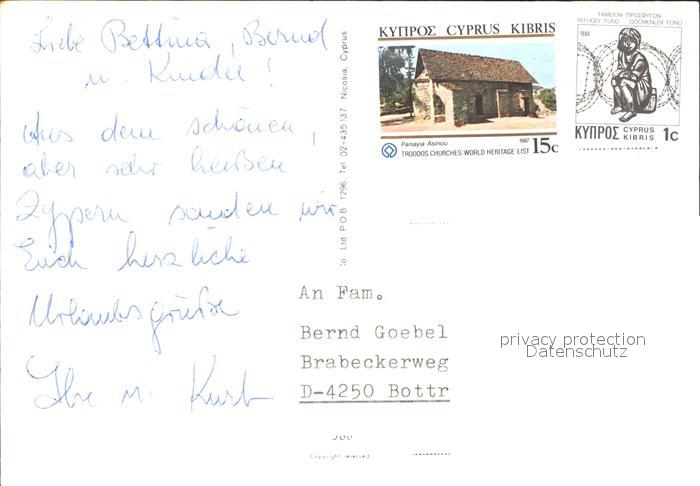 Liebe Bettina, Bernd
u. Kinder!
Aus dem schönen,
aber sehr heißen
Zypern senden wir
Euch herzliche
Urlaubsgrüße
u. Kurt
Co Ltd P.O.B 1296 Tel 02-435137 Nicosia, Cyprus
ΚΥΠΡΟΣ CYPRUS KIBRIS
Panayia Asinou 1987
TROODOS CHURCHES: WORLD HERITAGE LIST 15c
ΤΑΜΕΙΟΝ ΠΡΟΣΦΥΓΩΝ
REFUGEE FUND GÖCMENLER FONU
1984
ΚΥΠΡΟΣ CYPRUS KIBRIS 1c
An Fam.
Bernd Goebel
Brabeckerweg
D-4250 Bottr
privacy protection
Datenschutz
Copyright reserved